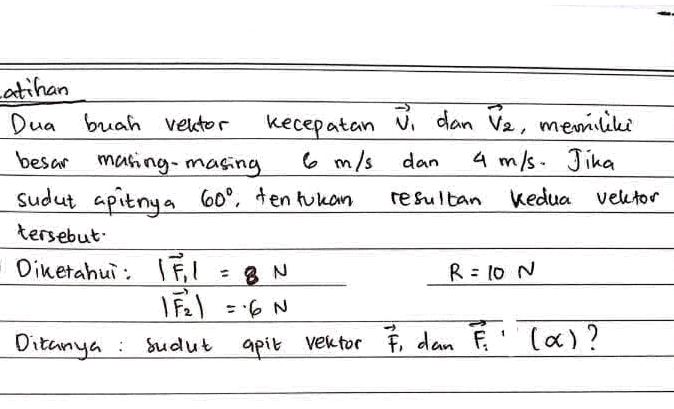 atihan
Dua buah vektor kecepatan V⃗₁ dan V⃗₂, memiliki
besar masing-masing 6 m/s dan 4 m/s. Jika
sudut apitnya 60°, tentukan resultan kedua vektor
tersebut.
Diketahui : |F⃗₁| = 8 N R = 10 N
|F⃗₂| = 6 N
Ditanya : sudut apit vektor F⃗₁ dan F⃗ (α) ?